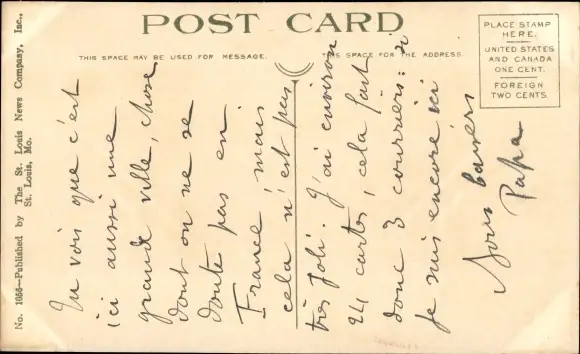 POST CARD
THIS SPACE MAY BE USED FOR MESSAGE.
THIS SPACE FOR THE ADDRESS.
PLACE STAMP
HERE.
UNITED STATES
AND CANADA
ONE CENT.
FOREIGN
TWO CENTS.
No. 1656—Published by The St. Louis News Company, Inc.,
St. Louis, Mo.
Tu vois que c'est
ici aussi une
grande ville, chose
dont on ne se
doute pas en
France, mais
cela n'est pas
très joli. J'ai environ
24 cartes, cela fait
donc 3 courriers: si
je suis encore ici
bons baisers
Papa